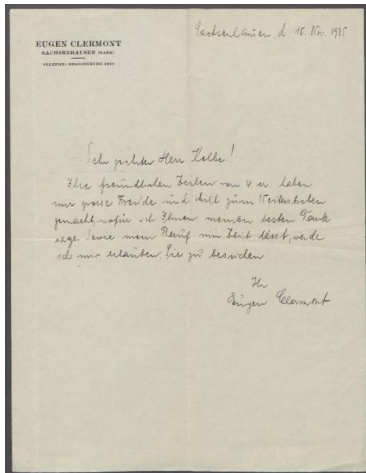 EUGEN CLERMONT
SACHSENHAUSEN (MARK)
TELEFON: ORANIENBURG 2960
Sachsenhausen, d. 18. Nov. 1935
Sehr geehrter Herr Kolbe!
Ihre freundlichen Zeilen vom 4. er. haben
mir grosse Freude und
gemacht, wofür ich Ihnen meinen besten Dank
sage. Sowie mein Beruf mir Zeit lässt, werde
ich mir erlauben, Sie zu besuchen
Ihr
Eugen Clermont